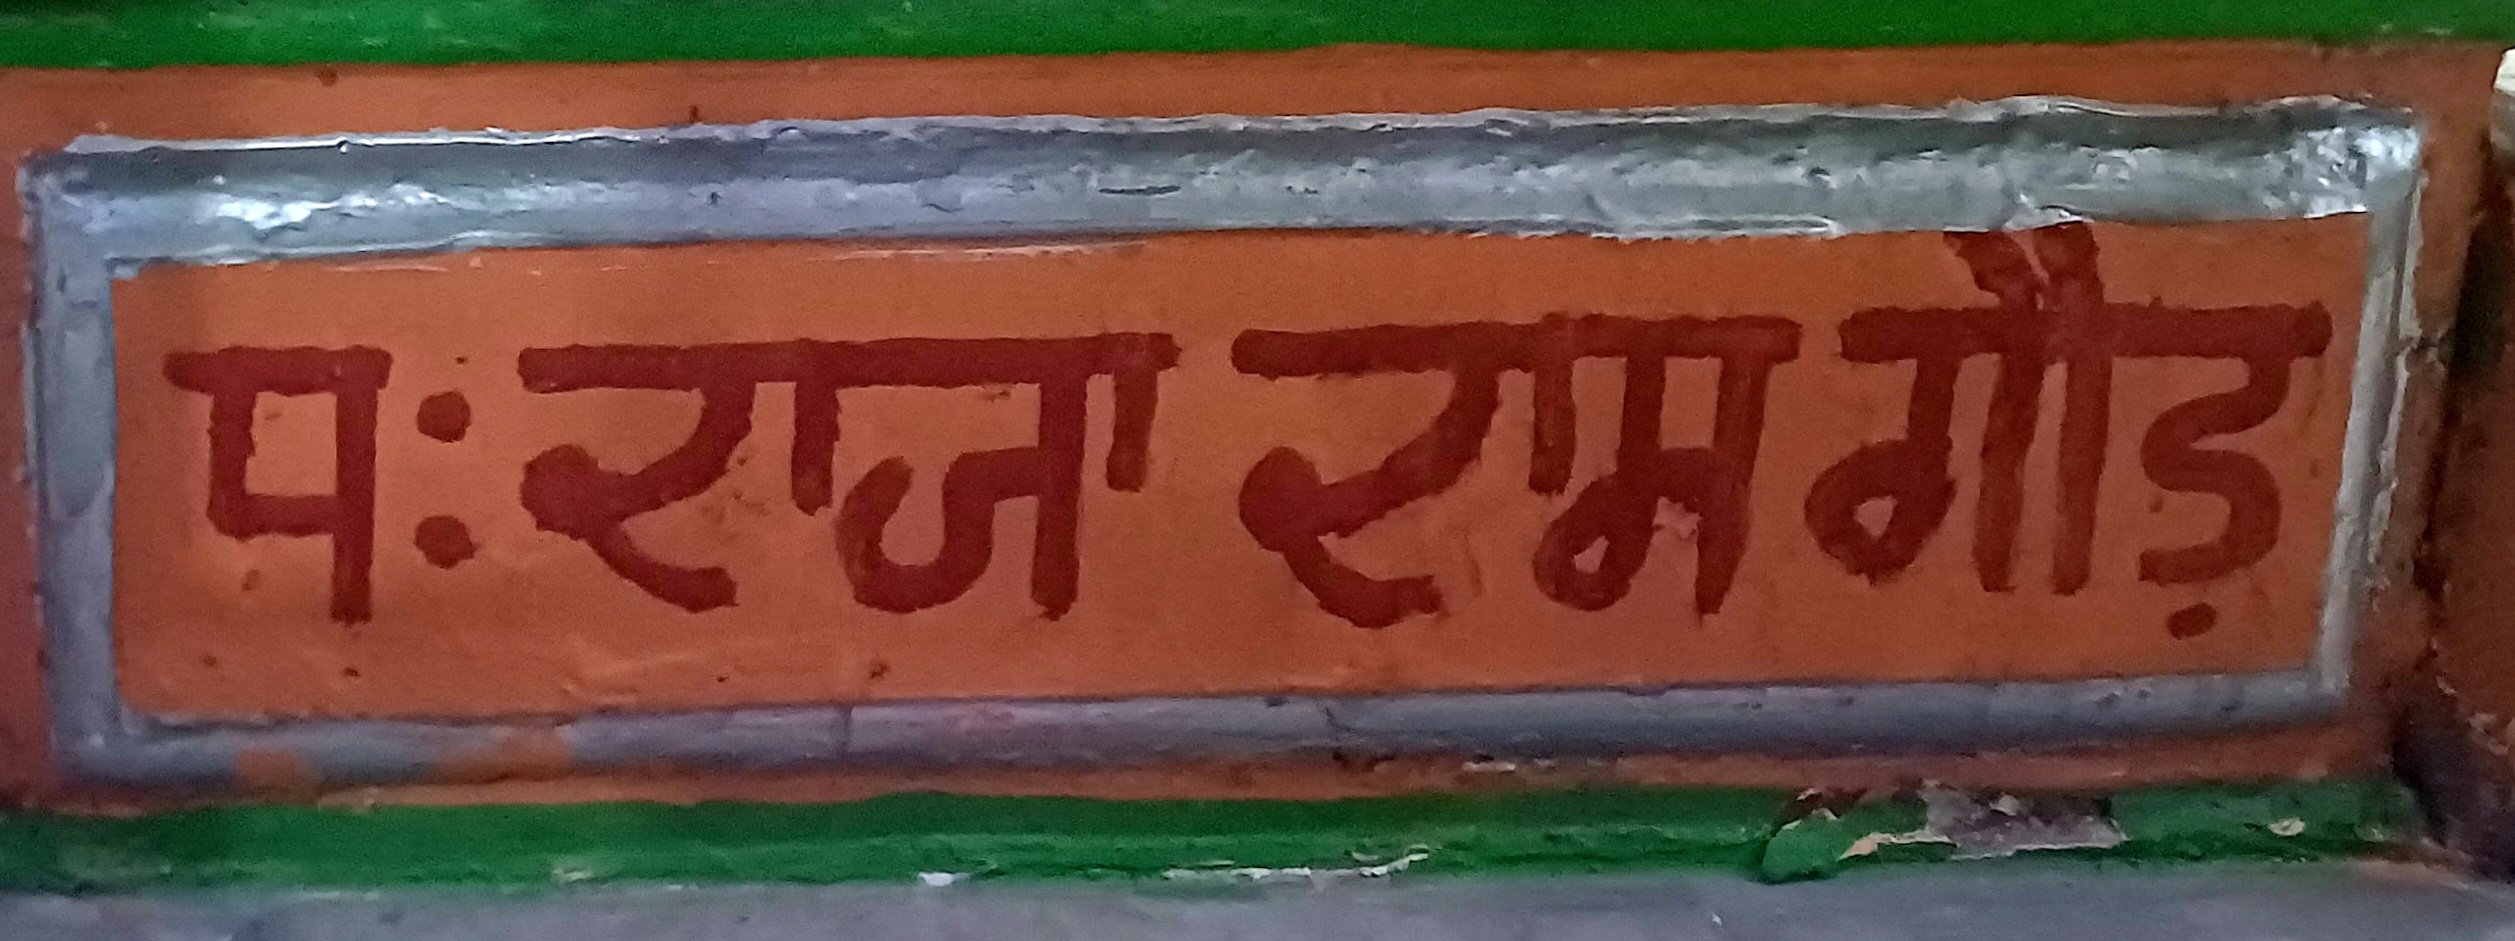 प: राजा राम गौड़